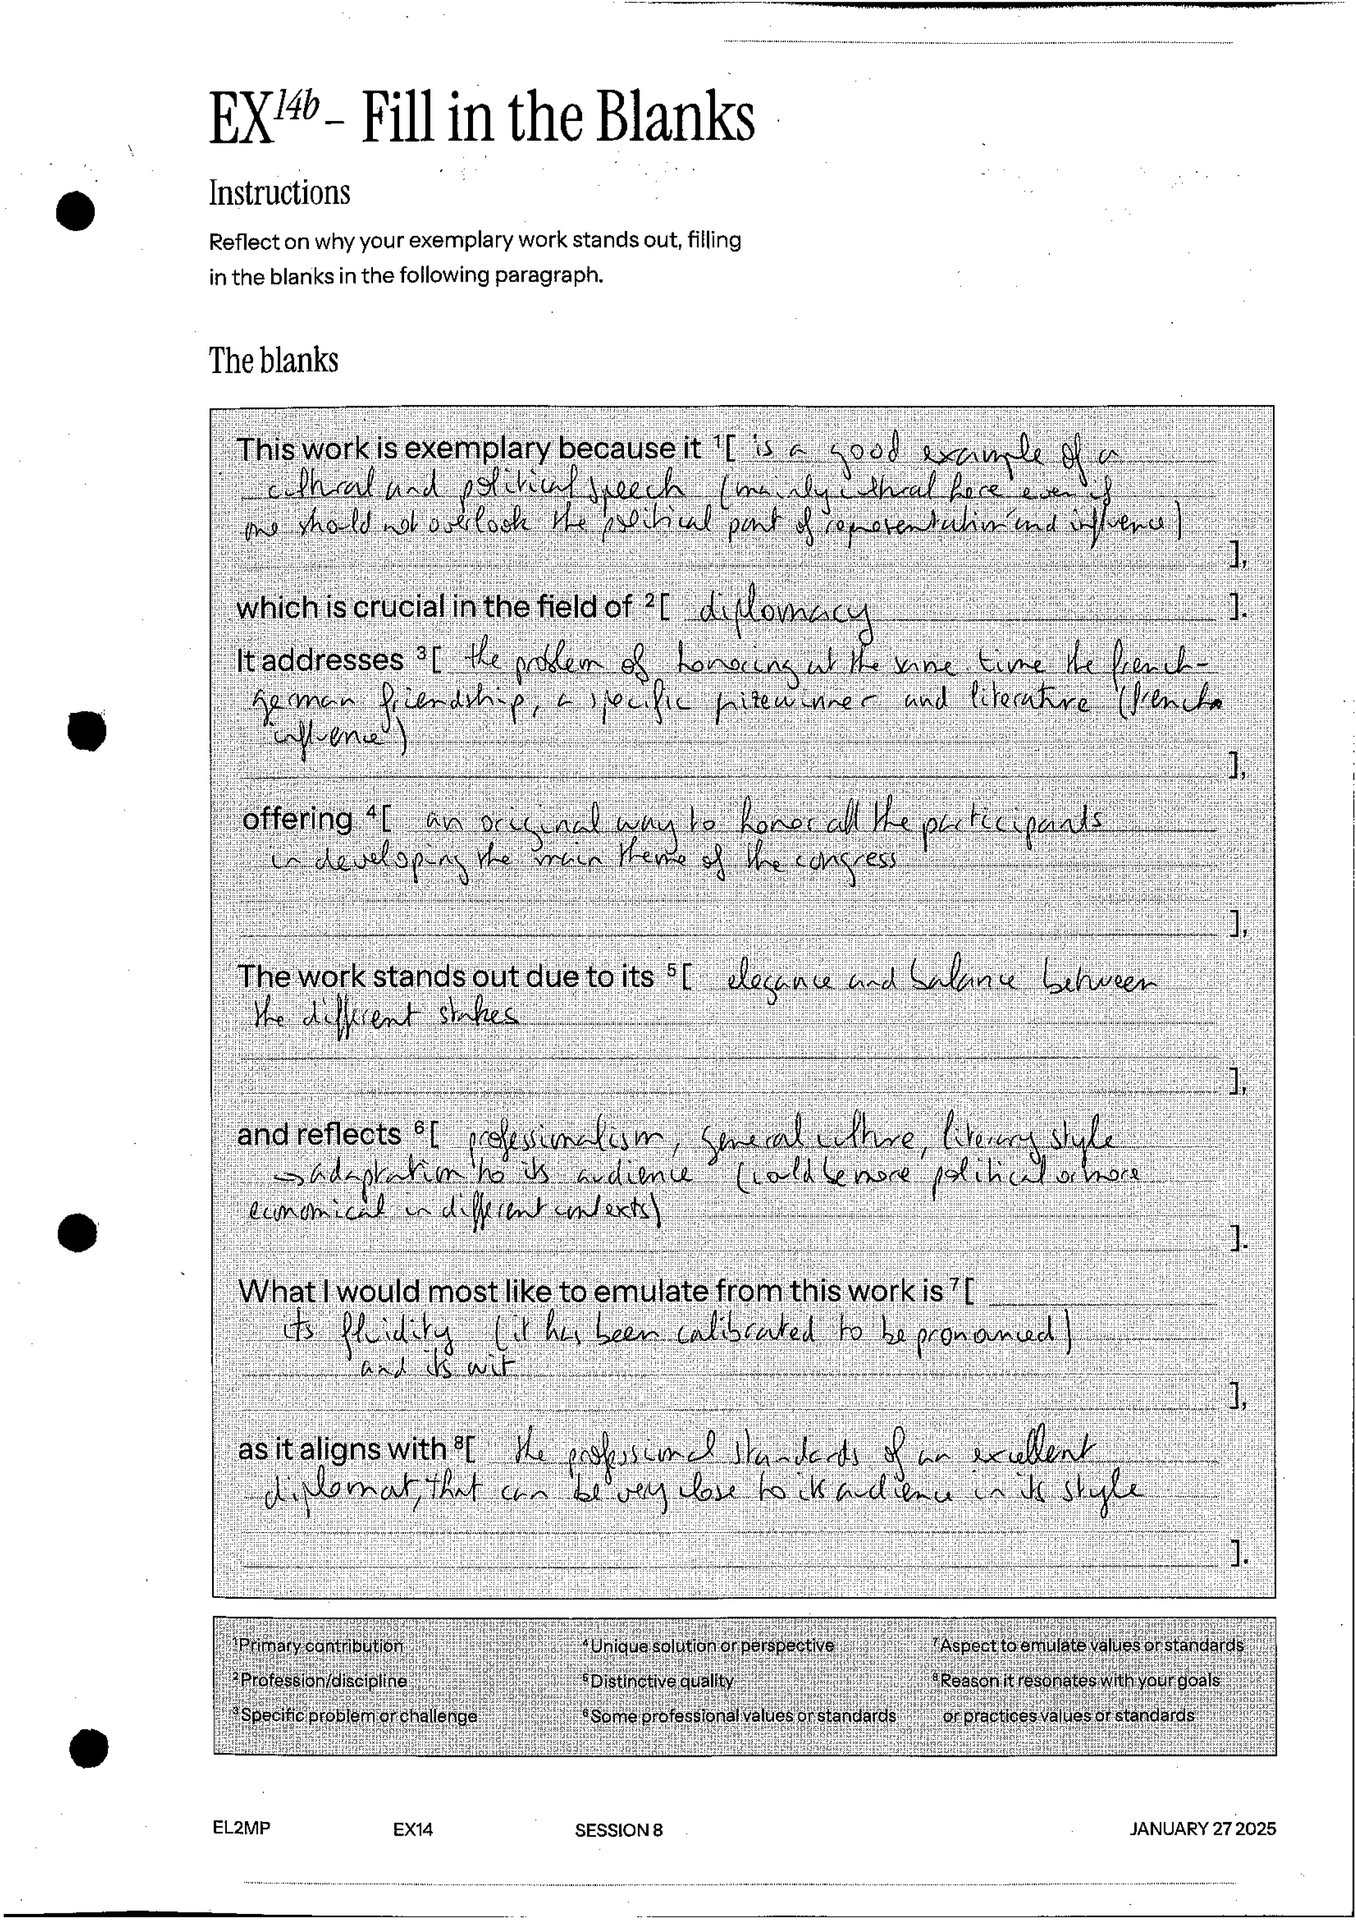 EX14b – Fill in the Blanks
Instructions
Reflect on why your exemplary work stands out, filling
in the blanks in the following paragraph.
The blanks
This work is exemplary because it 1[ is a good example of a
cultural and political speech (mainly cultural here even if
one should not overlook the political part of representation and influence)
],
which is crucial in the field of 2[ diplomacy ].
It addresses 3[ the problem of honoring at the same time the french-
german friendship, a specific prizewinner and literature (french
influence)
],
offering 4[ an original way to honor all the participants
in developing the main theme of the congress
],
The work stands out due to its 5[ elegance and balance between
the different stakes
],
and reflects 6[ professionalism, general culture, literary style
→ adaptation to its audience (could be more political or more
economical in different contexts)
].
What I would most like to emulate from this work is 7[
its fluidity (it has been calibrated to be pronounced)
and its wit
],
as it aligns with 8[ the professional standards of an excellent
diplomat, that can be very close to its audience in its style
].
1Primary contribution
2Profession/discipline
3Specific problem or challenge
4Unique solution or perspective
5Distinctive quality
6Some professional values or standards
7Aspect to emulate values or standards
8Reason it resonates with your goals
or practices values or standards
EL2MP EX14 SESSION 8 JANUARY 27 2025